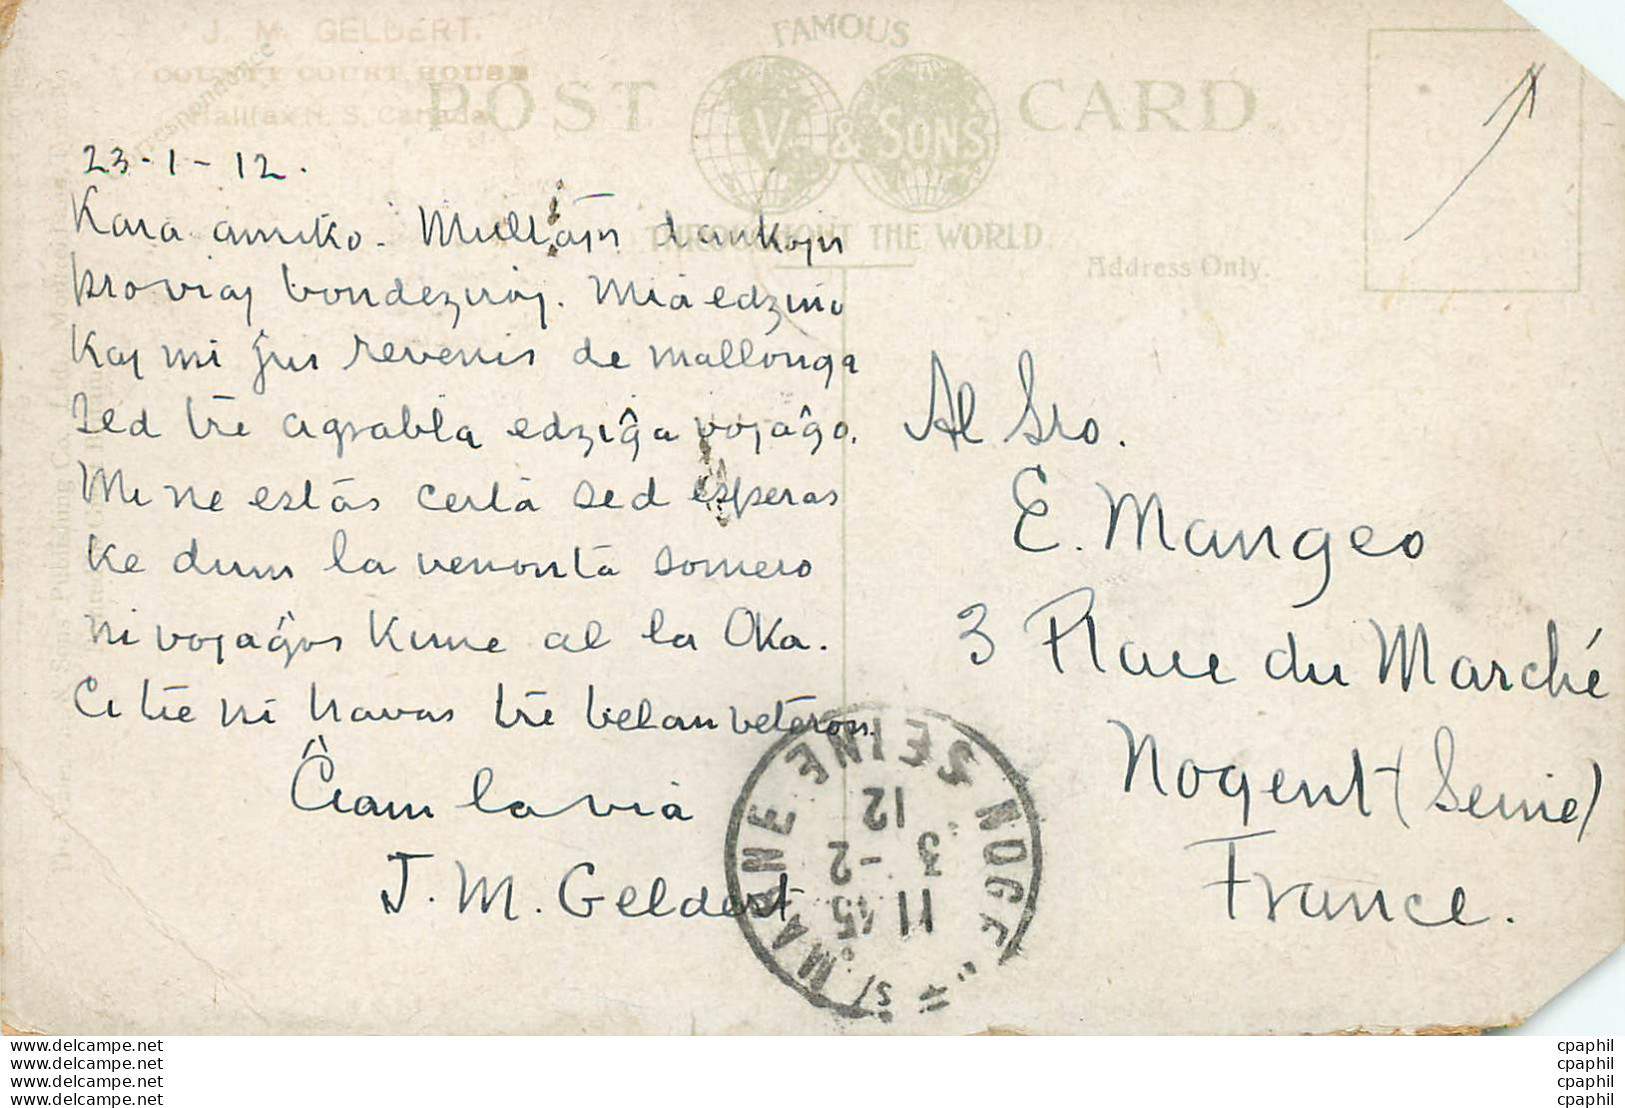 J. M. GELDERT.
COUNTY COURT HOUSE
Halifax N. S. Canada
Correspondence
FAMOUS
POST CARD
V. & SONS
THROUGHOUT THE WORLD
Address Only.
23-1-12.
Kara amiko. Multajn dankojn
pro viaj bondeziroj. Mia edzino
kaj mi ĵus revenis de mallonga
sed tre agrabla edziĝa vojaĝo.
Mi ne estas certa sed esperas
ke dum la venonta somero
ni vojaĝos kune al la Oka.
Ci tie ni havas tre belan veteron.
Ĉiam la via
J. M. Geldert
Al Sro.
E. Mangeo
3 Place du Marché
Nogent (Seine)
France.
NOGENT S/ MARNE SEINE
11 45
3 - 2
12
cpaphil.net
cpaphil.net
cpaphil.net
cpaphil.net
cpaphil
cpaphil
cpaphil
cpaphil